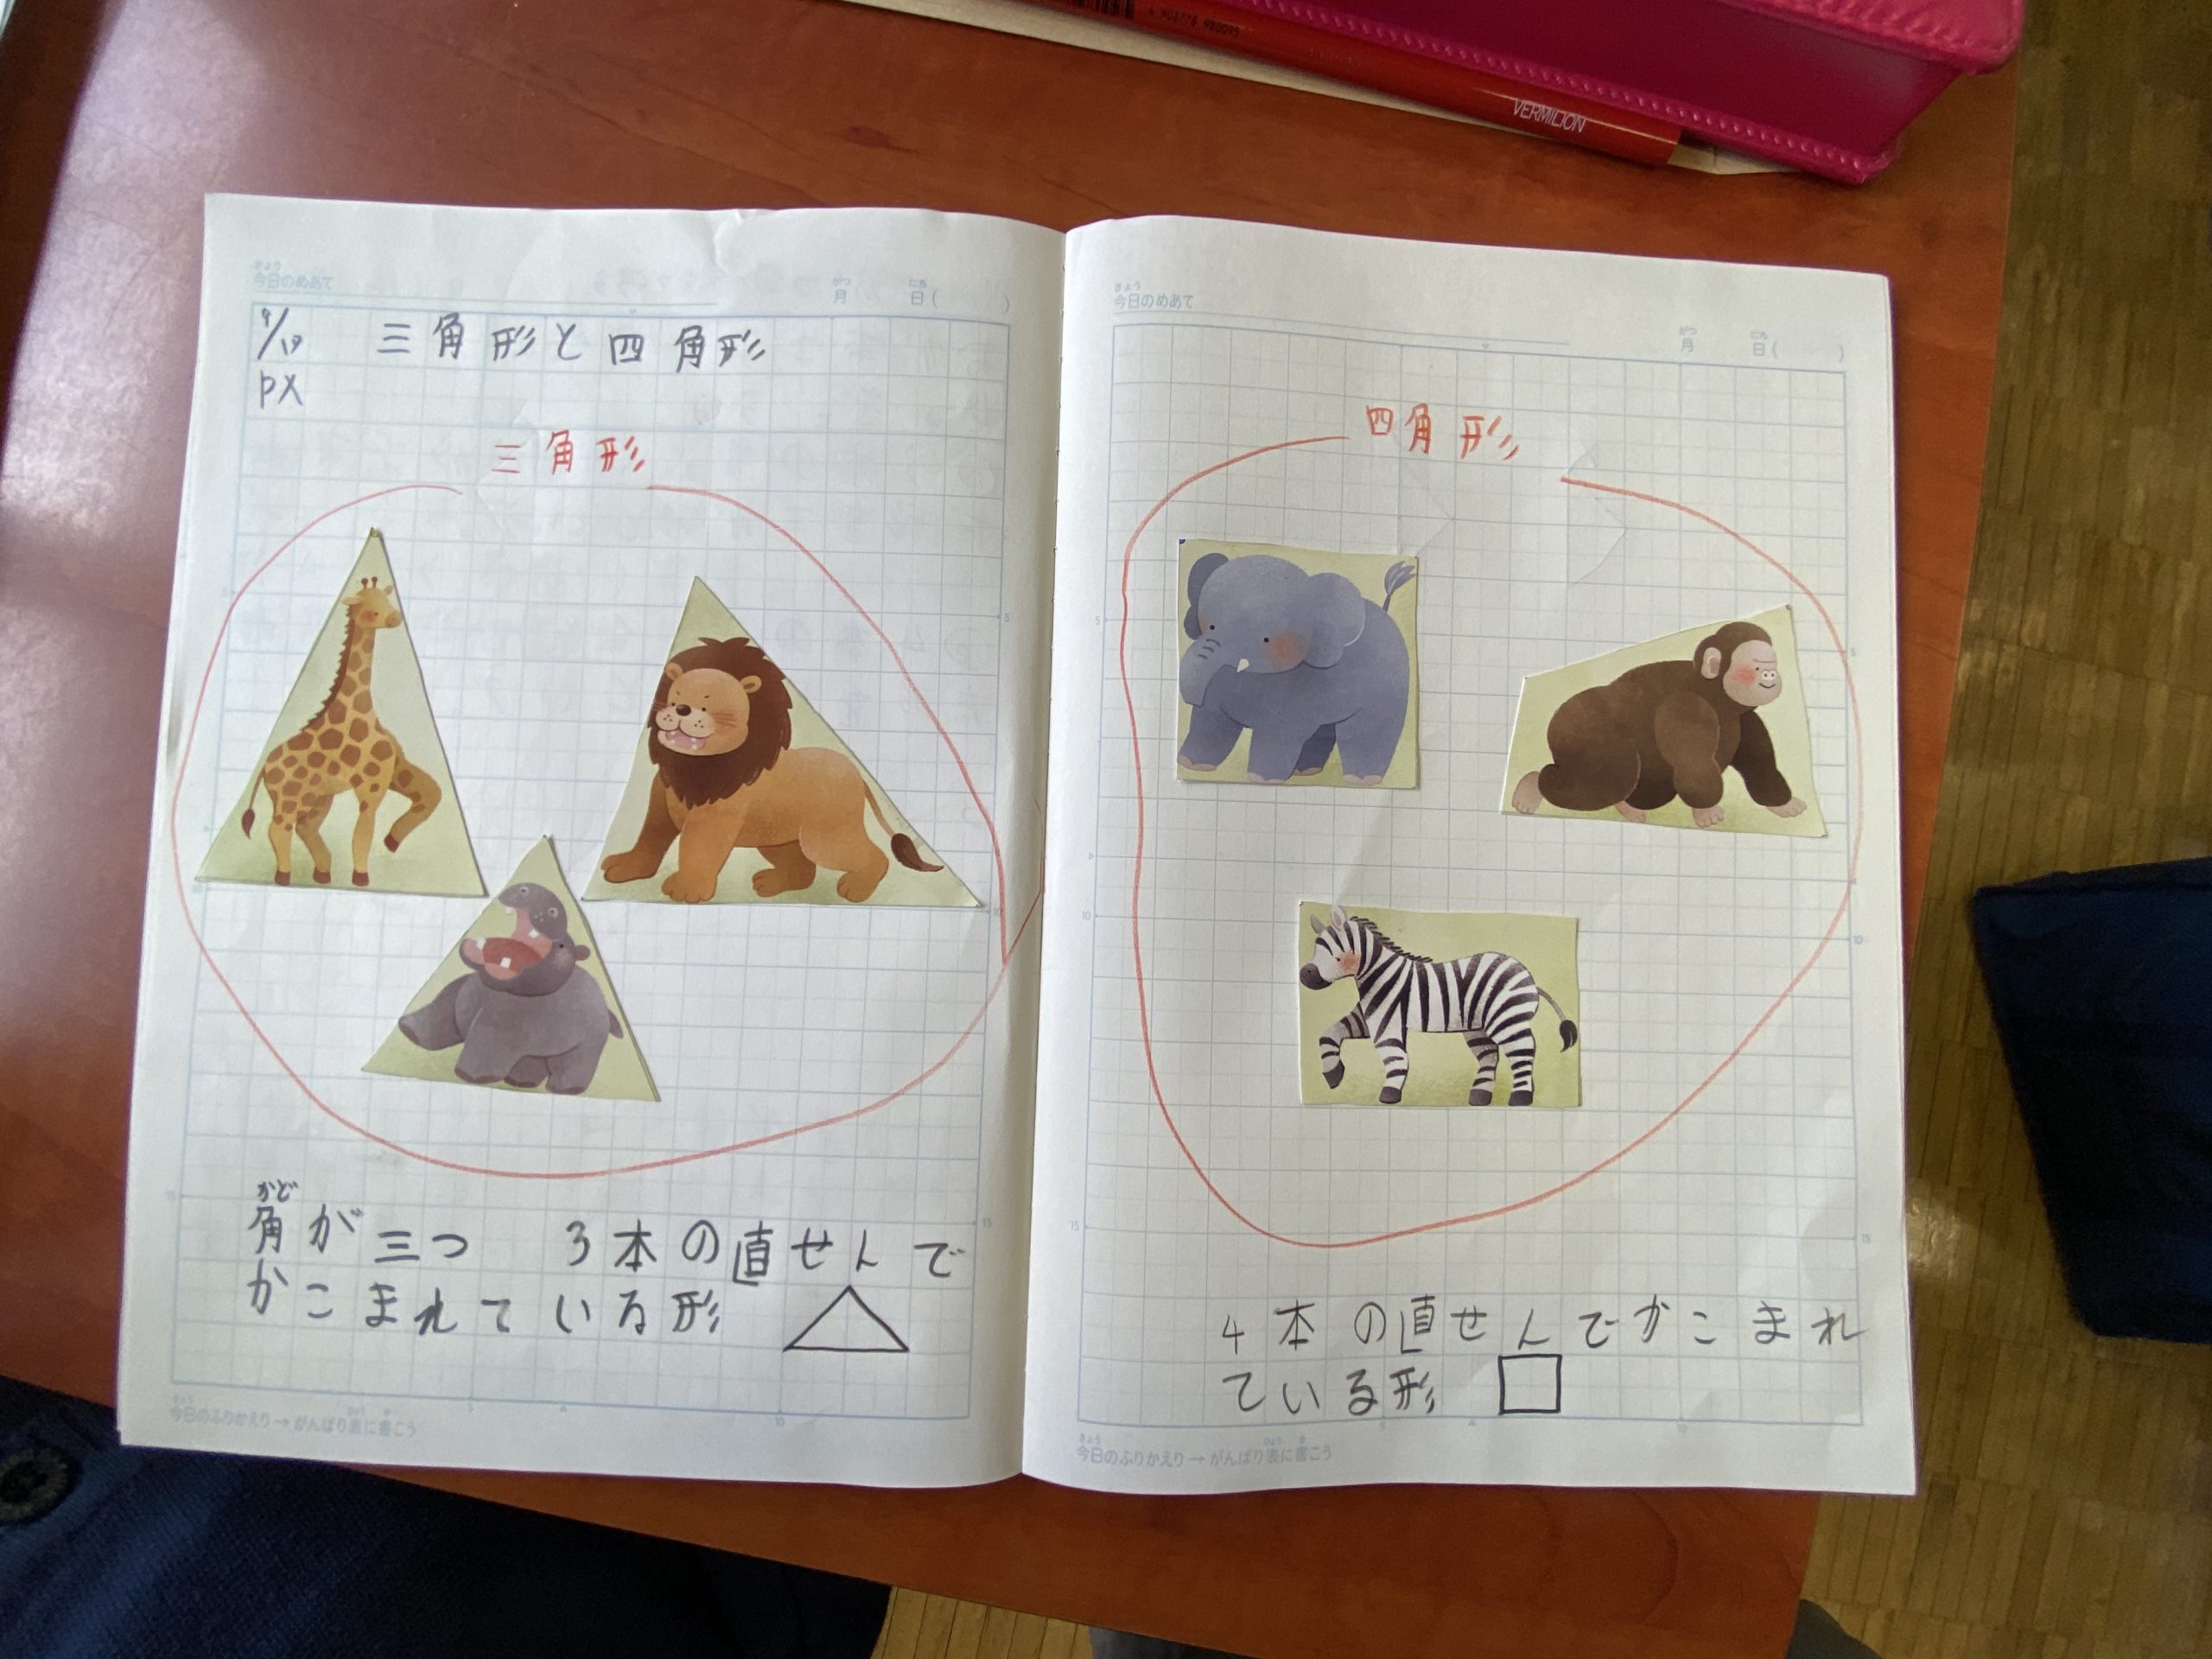 4 901774 980091
VERMILION
今日のめあて
月 日( )
三角形と四角形
PX
三角形
かど
角が三つ 3本の直せんで
かこまれている形
今日のふりかえり→がんばり表に書こう
今日のめあて
月 日( )
四角形
4本の直せんでかこまれ
ている形
今日のふりかえり→がんばり表に書こう